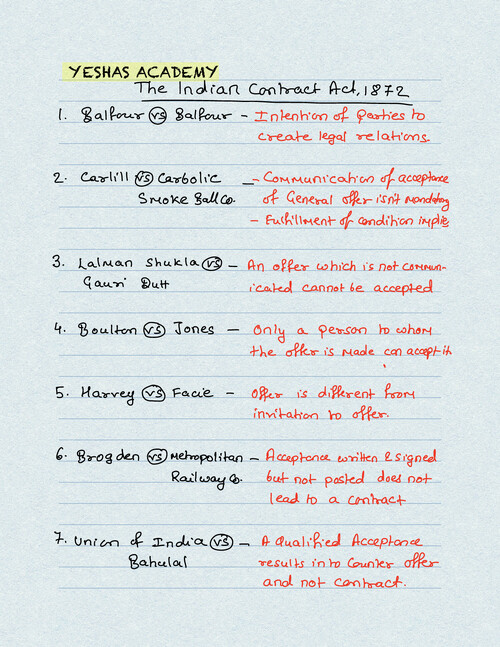 YESHAS ACADEMY
The Indian Contract Act, 1872
1. Balfour vs Balfour - Intention of Parties to
create legal relations.
2. Carlill vs Carbolic - - Communication of acceptance
Smoke Ball Co. of General offer isn't mandatory
- Fulfillment of condition implies
3. Lalman Shukla vs - An offer which is not commun-
Gauri Dutt icated cannot be accepted
4. Boulton vs Jones - Only a person to whom
the offer is made can accept it
5. Harvey vs Facie - Offer is different from
invitation to offer.
6. Brogden vs Metropolitan - Acceptance written & signed
Railway Co. but not posted does not
lead to a contract
7. Union of India vs - A Qualified Acceptance
Bahulal results into Counter offer
and not contract.